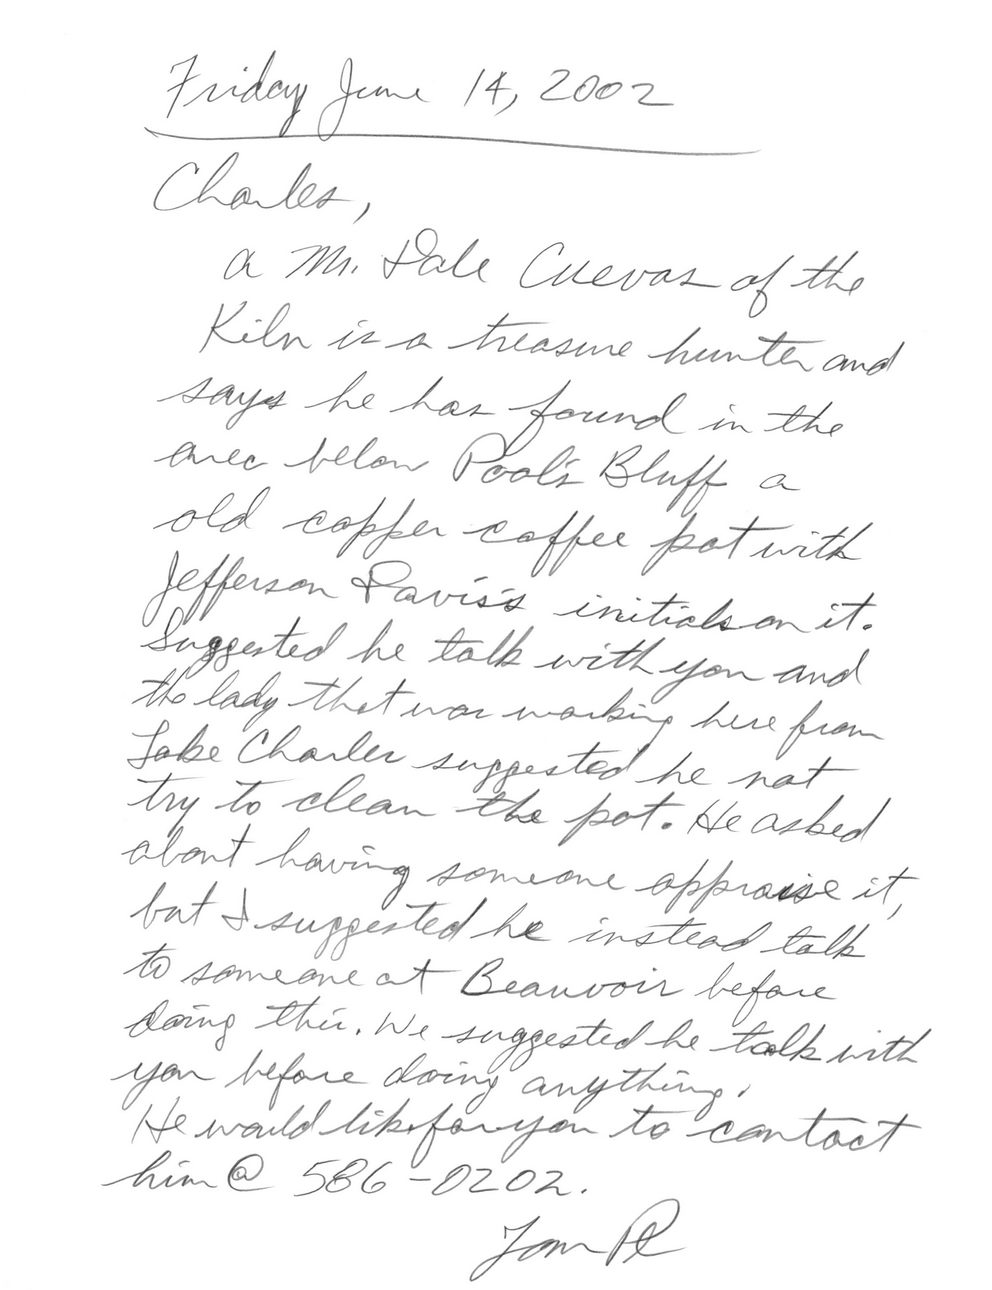 Friday June 14, 2002
Charles,
a Mr. Dale Cuevas of the
Kiln is a treasure hunter and
says he has found in the
area below Pool's Bluff a
old copper coffee pot with
Jefferson Davis's initials on it.
Suggested he talk with you and
the lady that was working here from
Lake Charles suggested he not
try to clean the pot. He asked
about having someone appraise it,
but I suggested he instead talk
to someone at Beauvoir before
doing this. We suggested he talk with
you before doing anything.
He would like for you to contact
him @ 586-0202.
Tom